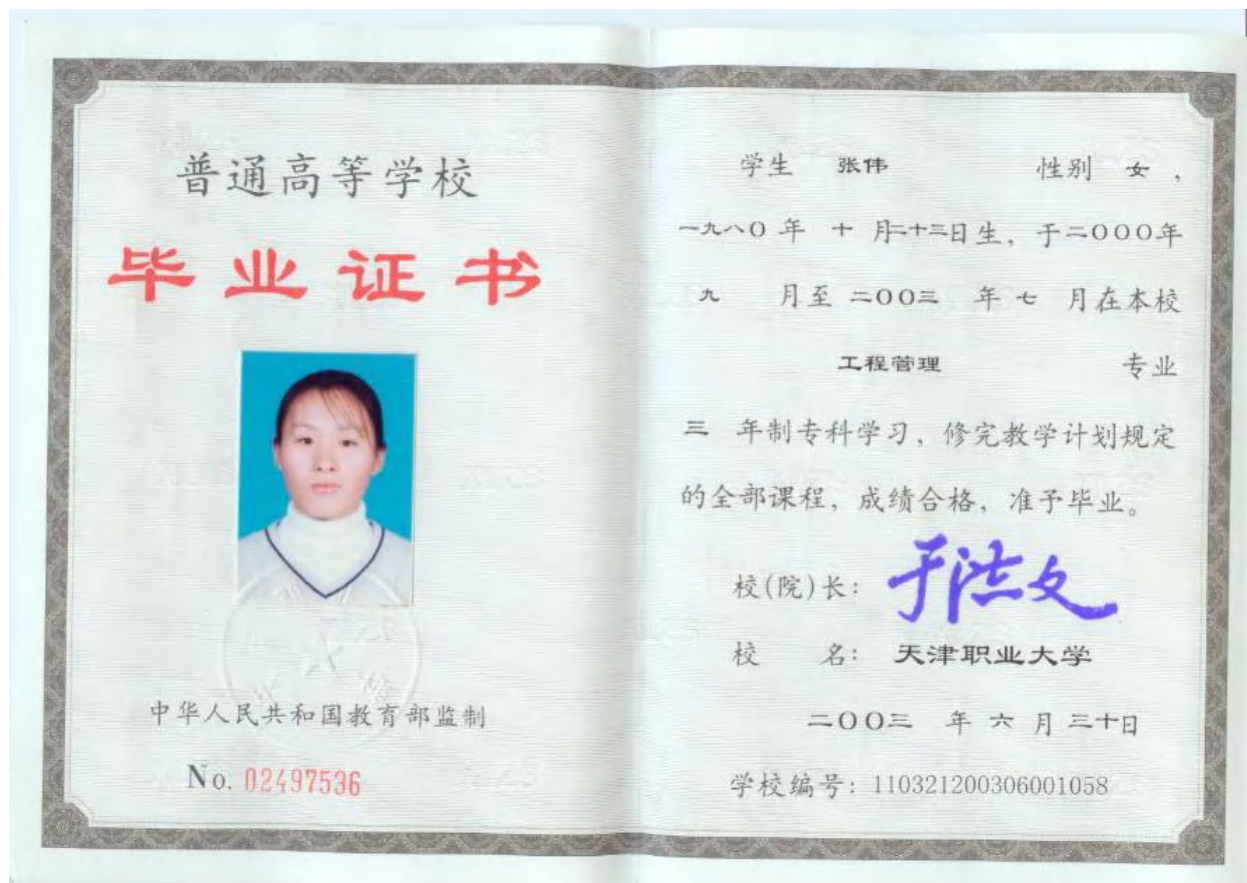 普通高等学校
毕业证书
中华人民共和国教育部监制
No. 02497536
学生 张伟 性别 女，
一九八〇年 十 月二十三日生，于二〇〇〇年
九 月至 二〇〇三 年 七 月在本校
工程管理 专业
三 年制专科学习，修完教学计划规定
的全部课程，成绩合格，准予毕业。
校(院)长： 于洪文
校 名： 天津职业大学
二〇〇三 年 六 月 三十日
学校编号：110321200306001058